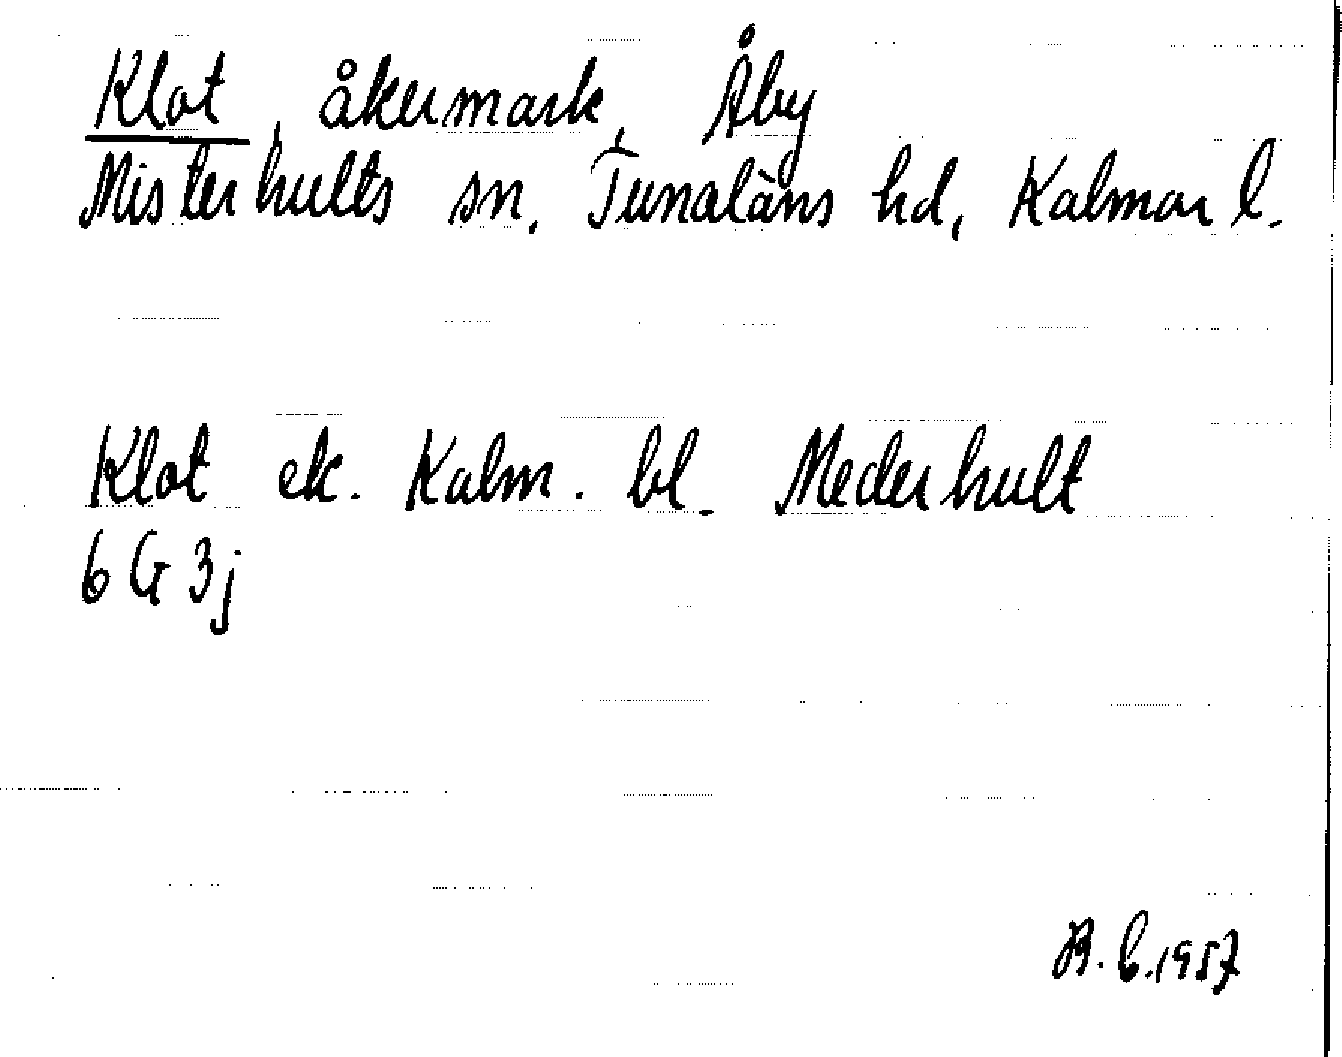 Klot, åkermark, Åby
Misterhults sn. Tunaläns hd, Kalmar l.
Klot ek. Kalm. bl. Mederhult
6 G 3j
1957